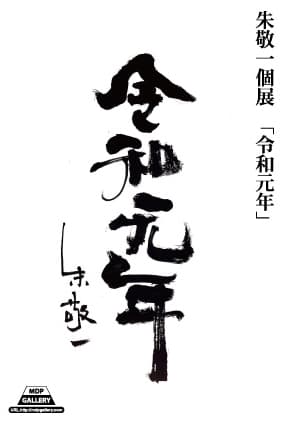 朱敬一個展 「令和元年」
令和元年
朱敬一
MDP
GALLERY
URL:http://mdpgallery.com